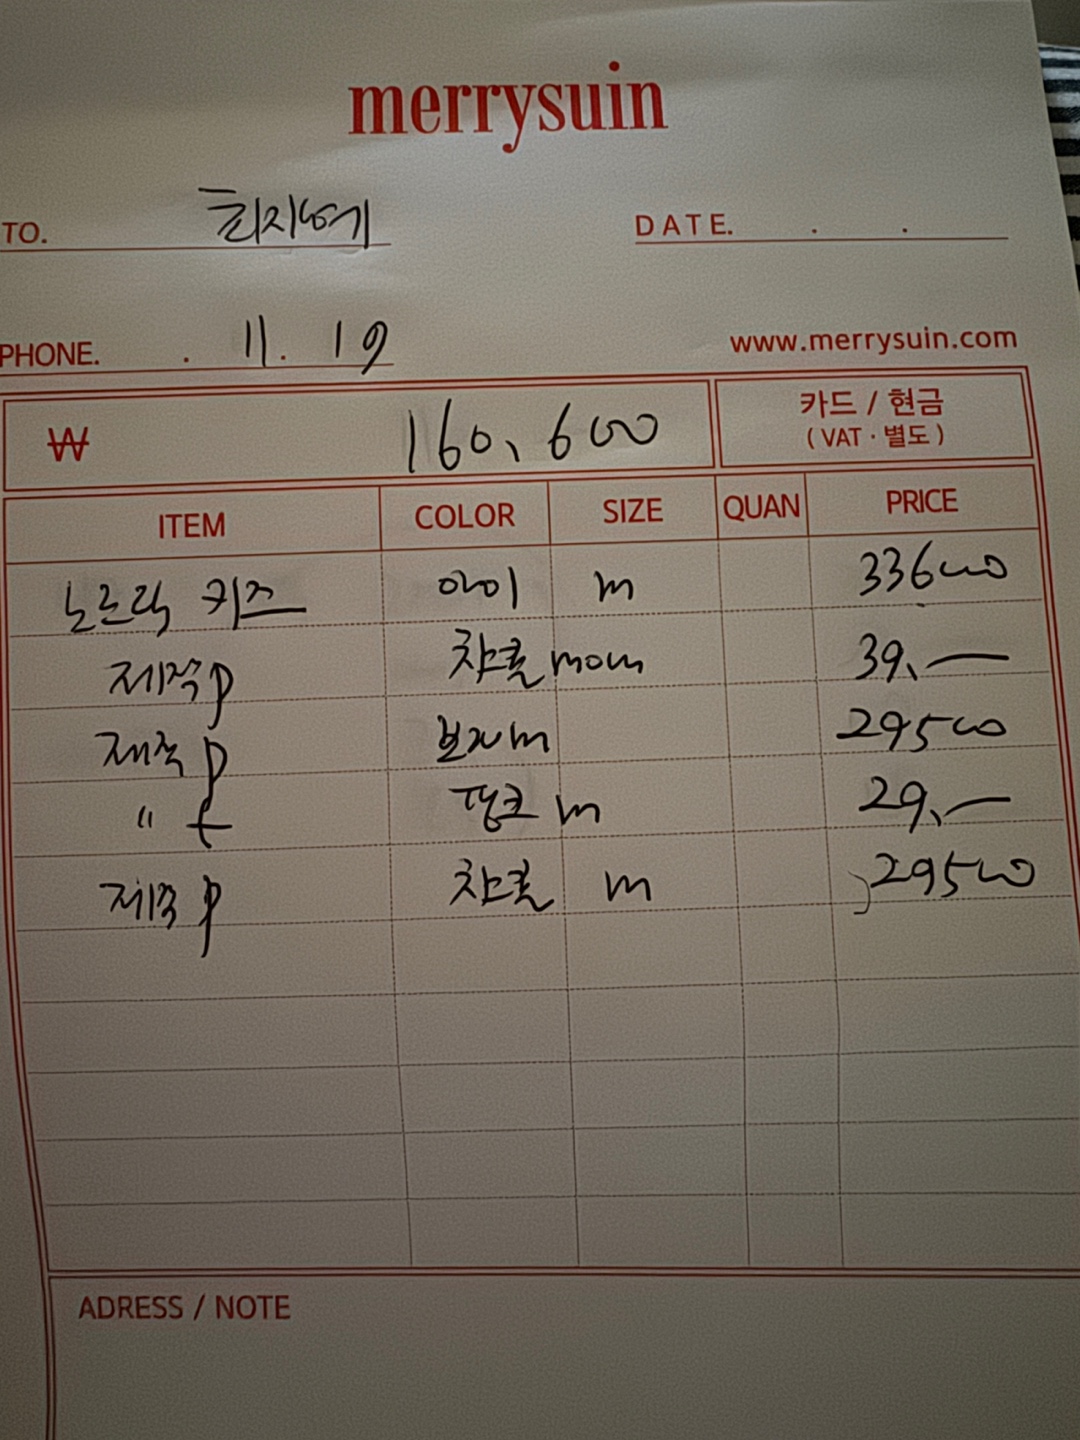 merrysuin
TO. 희지네
DATE. . .
PHONE. . 11. 19
www.merrysuin.com
₩ 160,600
카드 / 현금
( VAT · 별도 )
ITEM COLOR SIZE QUAN PRICE
노르딕 키즈 아이 m 33600
제작p 차콜 mom 39,—
제작p m 29500
" t 핑크 m 29,—
제작p 차콜 m 29500
ADRESS / NOTE